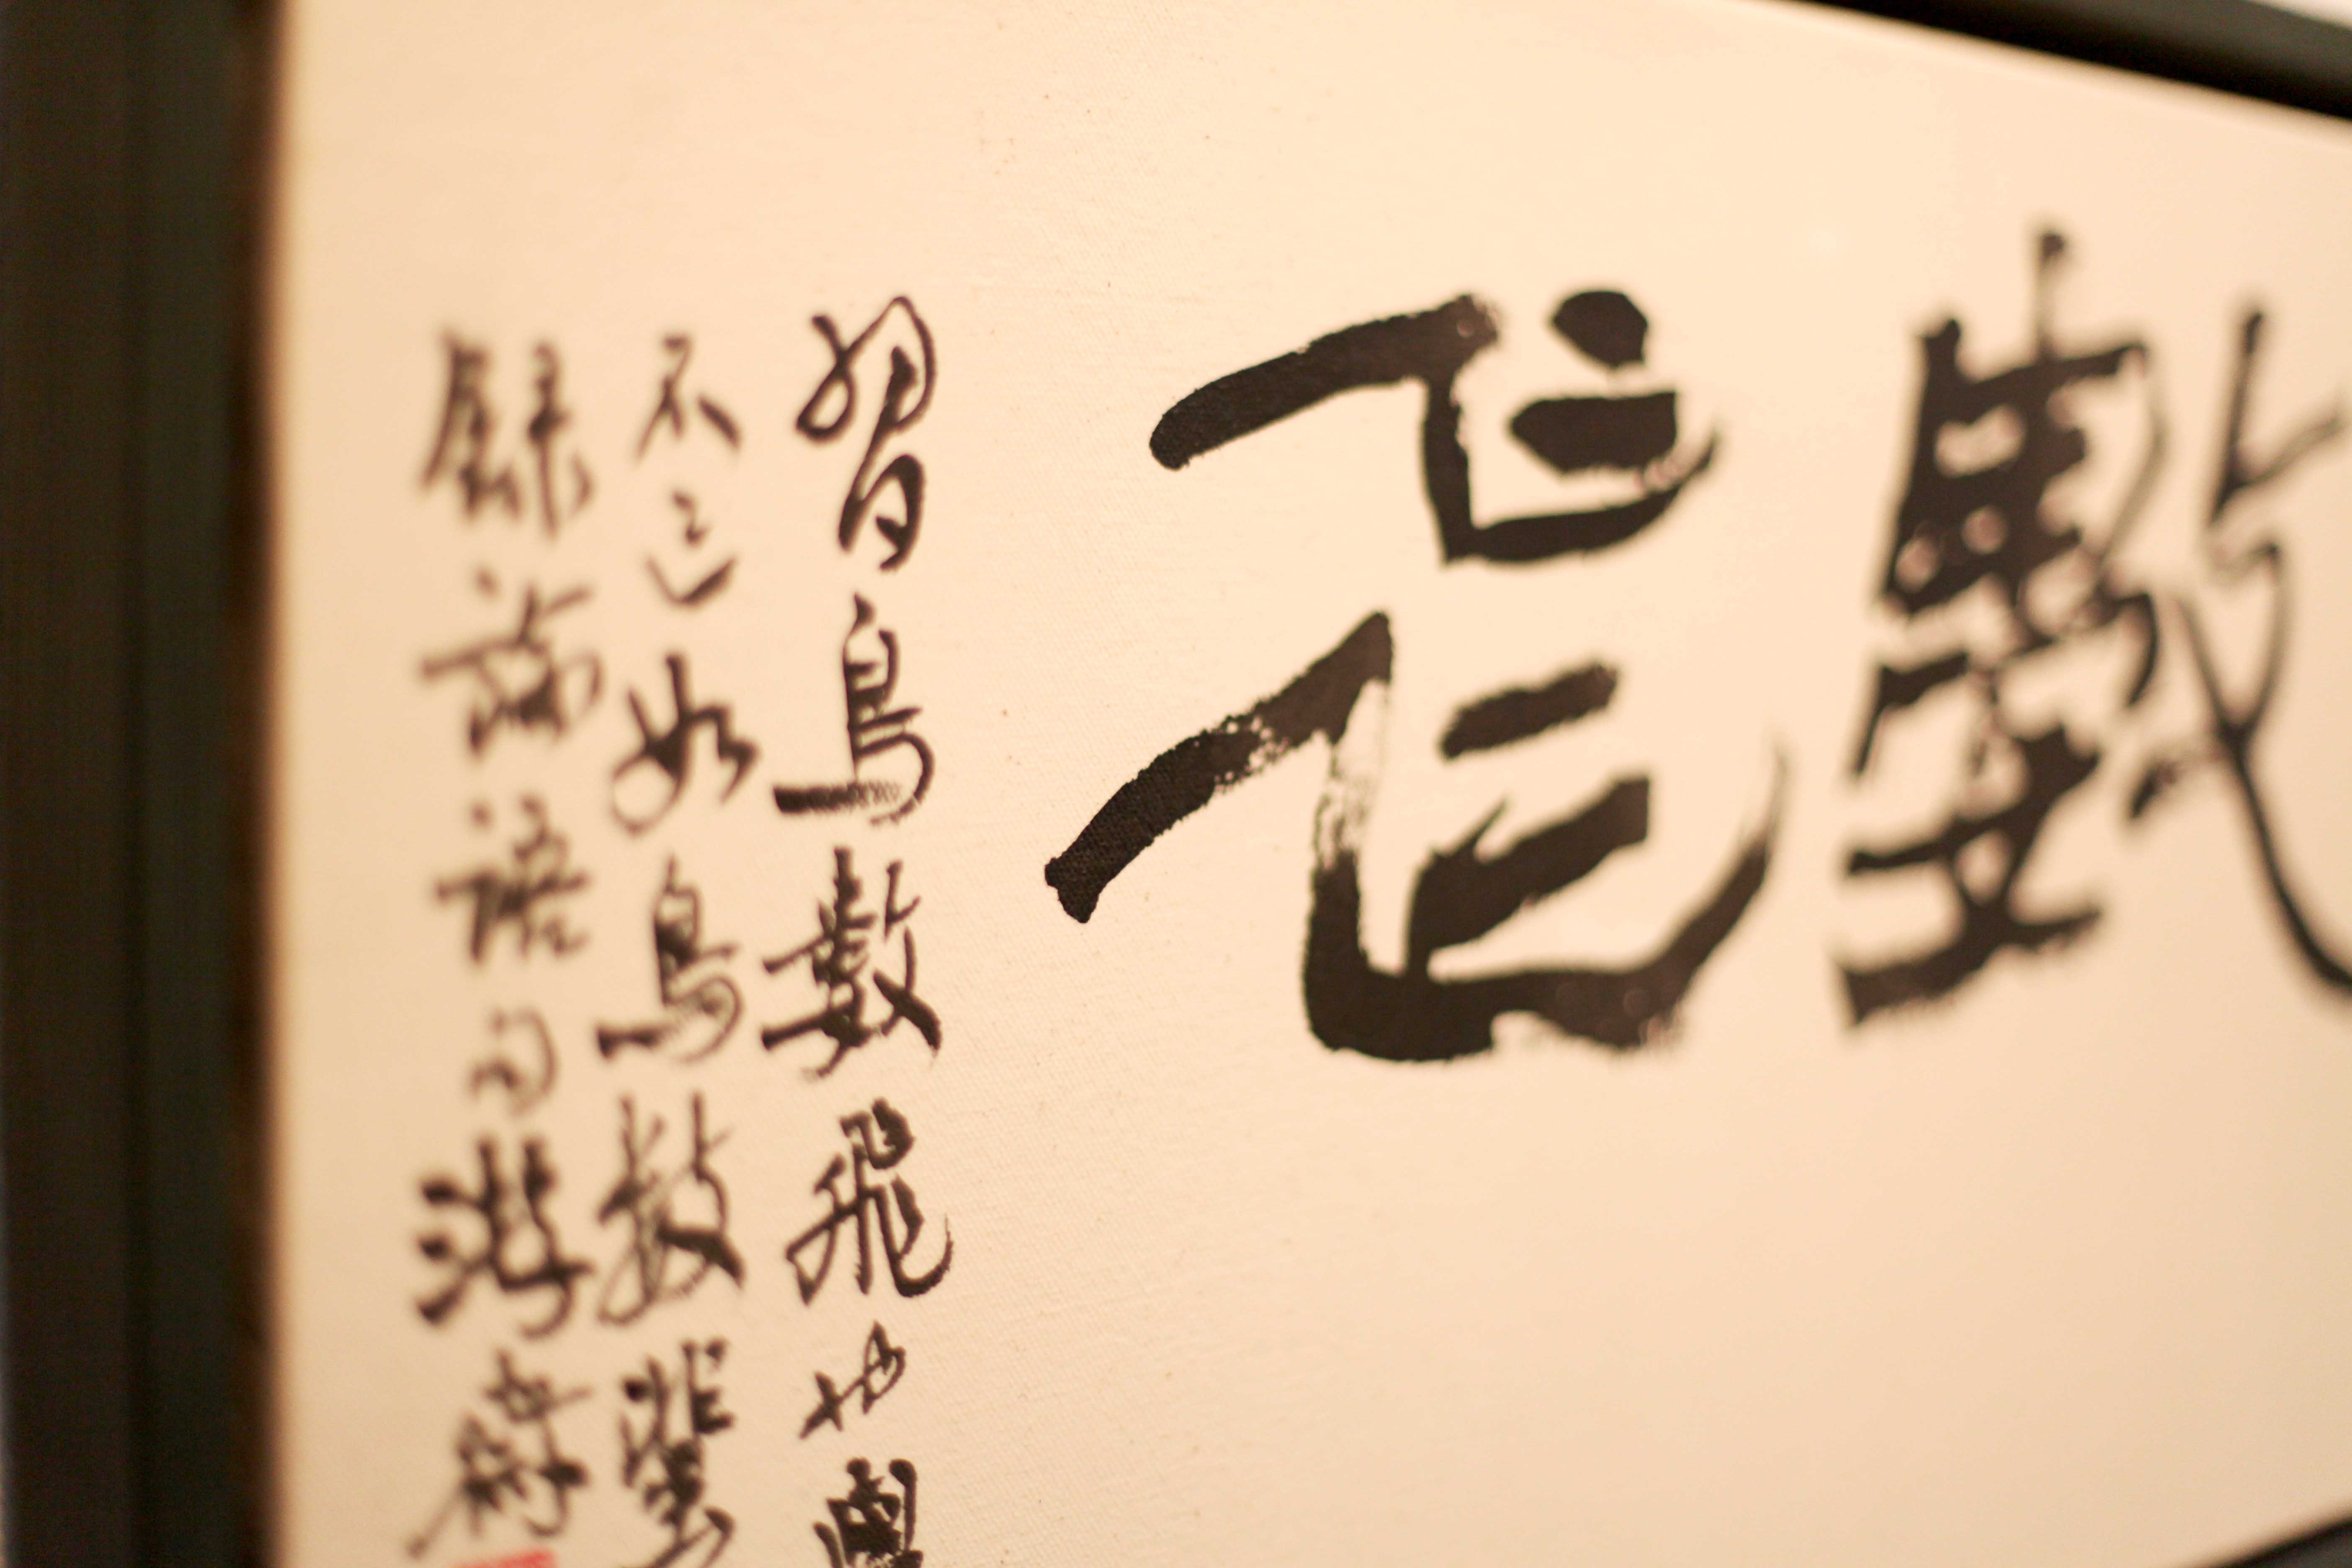 數飛
習鳥數飛也學
不已如鳥數蜚
録論語句游